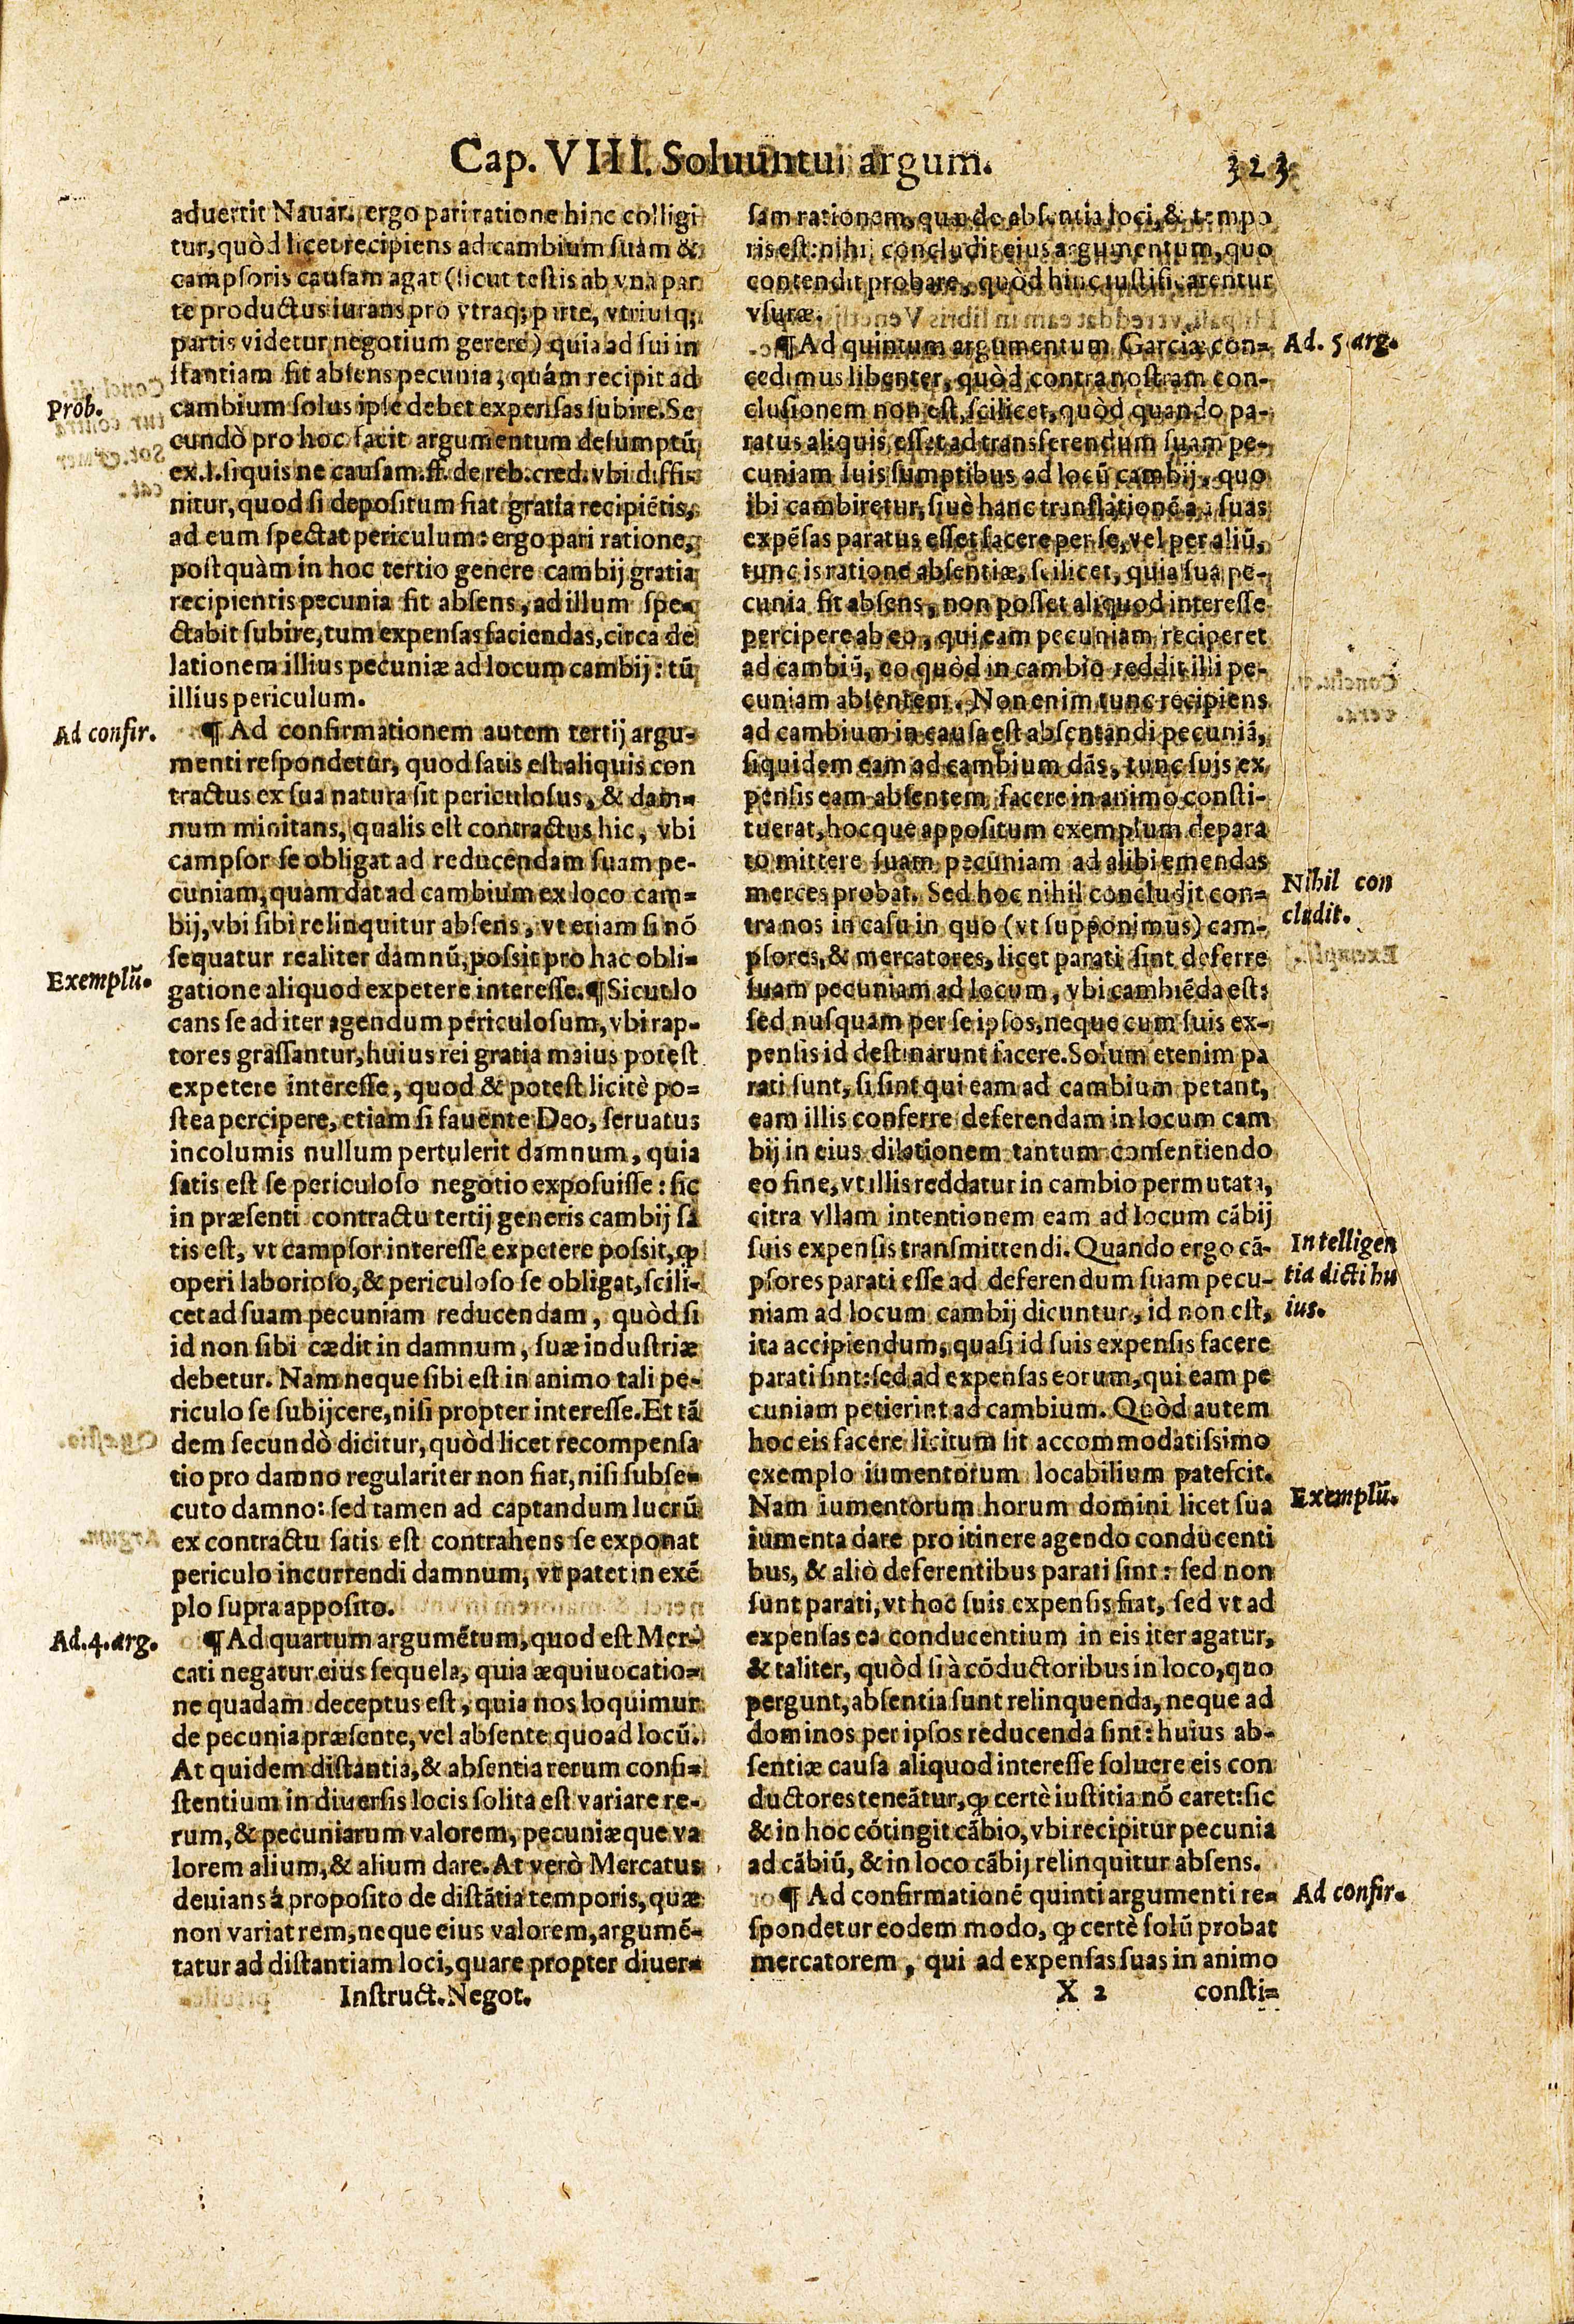 Cap. VIII. Soluuntur argum.
323
aduertit Nauar. ergo pari ratione hinc colligi
tur, quòd licet recipiens ad cambium suam &
campsoris causam agat (sicut testis ab vna par
te productus iurans pro vtraq; parte, vtriusq;
partis videtur negotium gerere) quia ad sui in
stantiam fit absens pecunia, quám recipit ad
Prob.
cambium solus ipse debet expensas subire. Se
cundò pro hoc facit argumentum desumptũ
ex.l.siquis ne causam.ff.de reb.cred.vbi diffi-
nitur, quod si depositum fiat gratia recipiẽtis,
ad eum spectat periculum: ergo pari ratione,
postquàm in hoc tertio genere cambij gratia
recipientis pecunia fit absens, ad illum spe-
ctabit subire, tum expensas faciendas, circa de
lationem illius pecuniæ ad locum cambij: tũ
illius periculum.
Ad confir.
¶ Ad confirmationem autem tertij argu-
menti respondetur, quod satis est aliquis con
tractus ex sua natura sit periculosus, & dam-
num minitans, qualis est contractus hic, vbi
campsor se obligat ad reducendam suam pe-
cuniam, quàm dat ad cambium ex loco cam-
bij, vbi sibi relinquitur absens, vt etiam si nõ
sequatur realiter damnũ, possit pro hac obli-
Exemplũ.
gatione aliquod expetere interesse. ¶ Sicut lo
cans se ad iter agendum periculosum, vbi rap-
tores grassantur, huius rei gratia maius potest
expetere interesse, quod & potest licitè po-
stea percipere, etiam si fauente Deo, seruatus
incolumis nullum pertulerit damnum, quia
satis est se periculoso negotio exposuisse: sic
in præsenti contractu tertij generis cambij sa
tis est, vt campsor interesse expetere possit, ꝙ
operi laborioso, & periculoso se obligat, scili-
cet ad suam pecuniam reducendam, quòd si
id non sibi cædit in damnum, suæ industriæ
debetur. Nam neque sibi est in animo tali pe-
riculo se subijcere, nisi propter interesse. Et tã
dem secundò dicitur, quòd licet recompensa
tio pro damno regulariter non fiat, nisi subse-
cuto damno: sed tamen ad captandum lucrũ
ex contractu satis est contrahens se exponat
periculo incurrendi damnum, vt patet in exẽ
plo supra apposito.
Ad.4.arg.
¶ Ad quartum argumẽtum, quod est Mer-
cati negatur eius sequela, quia æquiuocatio-
ne quadam deceptus est, quia nos loquimur
de pecunia præsente, vel absente quoad locũ.
At quidem distantia, & absentia rerum consi-
stentium in diuersis locis solita est variare re-
rum, & pecuniarum valorem, pecuniæque va
lorem alium, & alium dare. At verò Mercatus
deuians á proposito de distãtia temporis, quæ
non variat rem, neque eius valorem, argumẽ-
tatur ad distantiam loci, quare propter diuer-
Instruct. Negot.
sam rationem, quæ de absentia loci, & tempo
ris est: nihil concludit eius argumentum, quo
contendit probare, quòd hinc iustificarentur
vsuræ.
Ad. 5 arg.
¶ Ad quintum argumentum Garciæ con-
cedimus libenter, quòd contra nostram con-
clusionem non est, scilicet, quòd quando pa-
ratus aliquis esset ad transferendum suam pe-
cuniam suis sumptibus ad locũ cambij, quo
ibi cambiretur, siuè hanc translationẽ ad suas
expẽsas paratus esset facere per se, vel per aliũ,
tunc is ratione absentiæ, scilicet, quia sua pe-
cunia fit absens, non posset aliquod interesse
percipere ab eo, qui eam pecuniam reciperet
ad cambiũ, eo quòd in cambio reddit illi pe-
cuniam absentem. Non enim tunc recipiens
ad cambium in causa est absentandi pecuniã,
siquidem eam ad cambium dãs, tunc suis ex
pensis eam absentem facere in animo consti-
tuerat, hocque appositum exemplum de para
to mittere suam pecuniam ad alibi emendas
Nihil con
cludit.
merces probat. Sed hoc nihil concludit con-
tra nos in casu in quo (vt supponimus) cam-
psores, & mercatores, licet parati sint deferre
suam pecuniam ad locum, vbi cambiẽda est:
sed nusquam per se ipsos, neque cum suis ex-
pensis id destinarunt facere. Solum etenim pa
rati sunt, si sint qui eam ad cambium petant,
eam illis conferre deferendam in locum cam
bij in eius dilationem tantum consentiendo
eo fine, vt illis reddatur in cambio permutata,
citra vllam intentionem eam ad locum cãbij
Intelligen
tia dicti hu
ius.
suis expensis transmittendi. Quando ergo cã-
psores parati esse ad deferendum suam pecu-
niam ad locum cambij dicuntur, id non est,
ita accipiendum, quasi id suis expensis facere
parati sint: sed ad expensas eorum, qui eam pe
cuniam petierint ad cambium. Quòd autem
hoc eis facere licitum sit accommodatissimo
exemplo iumentorum locabilium patescit.
Exemplũ.
Nam iumentorum horum domini licet sua
iumenta dare pro itinere agendo conducenti
bus, & aliò deferentibus parati sint: sed non
sunt parati, vt hoc suis expensis fiat, sed vt ad
expensas ea conducentium in eis iter agatur,
& taliter, quòd si à cõductoribus in loco, quo
pergunt, absentia sunt relinquenda, neque ad
dominos per ipsos reducenda sint: huius ab-
sentiæ causa aliquod interesse soluere eis con
ductores teneãtur, ꝙ certè iustitia nõ caret: sic
& in hoc cõtingit cãbio, vbi recipitur pecunia
ad cãbiũ, & in loco cãbij relinquitur absens.
Ad confir.
¶ Ad confirmationẽ quinti argumenti re-
spondetur eodem modo, ꝙ certè solũ probat
mercatorem, qui ad expensas suas in animo
X 2
consti-